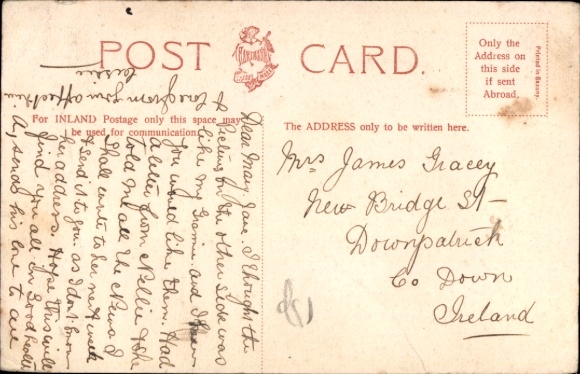 POST CARD.
Only the
Address on
this side
if sent
Abroad.
Printed in Saxony.
For INLAND Postage only this space may
be used for communication.
The ADDRESS only to be written here.
Dear Mary Jane. I thought the
Picture on the other side was
like my Grannie and I knew
you would like them. Had
a letter from Nellie & she
told me all the News I
shall write to her next week
& send it to you. as I dont know
her address. Hope this will
find you all in Good health
sends his love to all
& Love from your affect
Mrs James Gracey
New Bridge St
Downpatrick
Co Down
Ireland